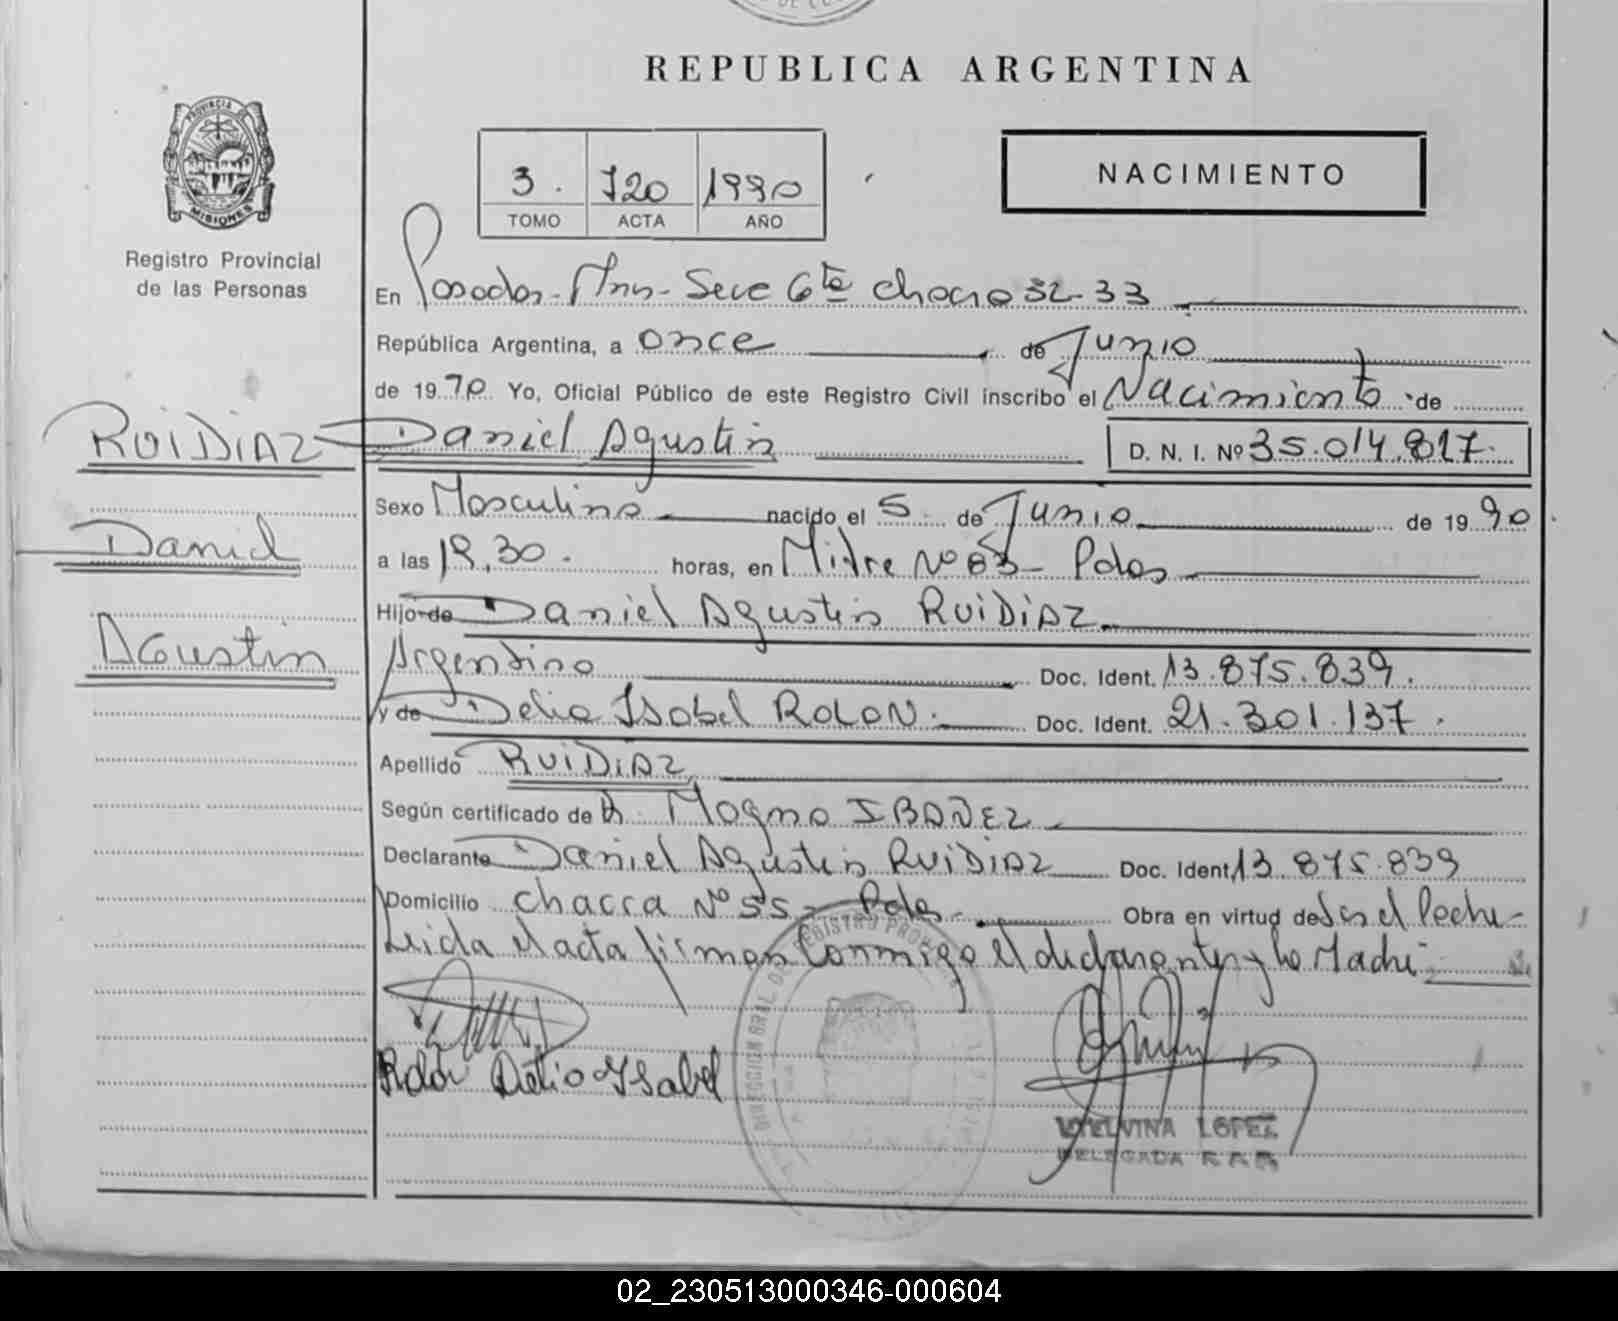 REPUBLICA ARGENTINA
PROVINCIA DE
MISIONES
Registro Provincial
de las Personas
3. 120 1990
TOMO ACTA AÑO
NACIMIENTO
En Posadas - Mns - Secc 6ta chacra 32-33
República Argentina, a once de Junio
de 1990 Yo, Oficial Público de este Registro Civil inscribo el Nacimiento de
RUIDIAZ Daniel Agustin D. N. I. Nº 35.014.817
Sexo Masculino nacido el 5 de Junio de 1990
Daniel
a las 19,30 horas, en Mitre Nº 63 - Pdas
Hijo de Daniel Agustin RUIDIAZ
Agustin
Argentino Doc. Ident. 13.875.839.
y de Delia Isabel ROLON. Doc. Ident. 21.301.137.
Apellido RUIDIAZ
Según certificado de Dr. Magno IBAÑEZ
Declarante Daniel Agustin RUIDIAZ Doc. Ident 13.875.839
Domicilio chacra Nº 55 - Pdas - Obra en virtud de Ser el Padre -
Leida el acta firman conmigo el declarante y la Madre
Rolon Delia Ysabel
LOPEZ
DELEGADA
02_230513000346-000604